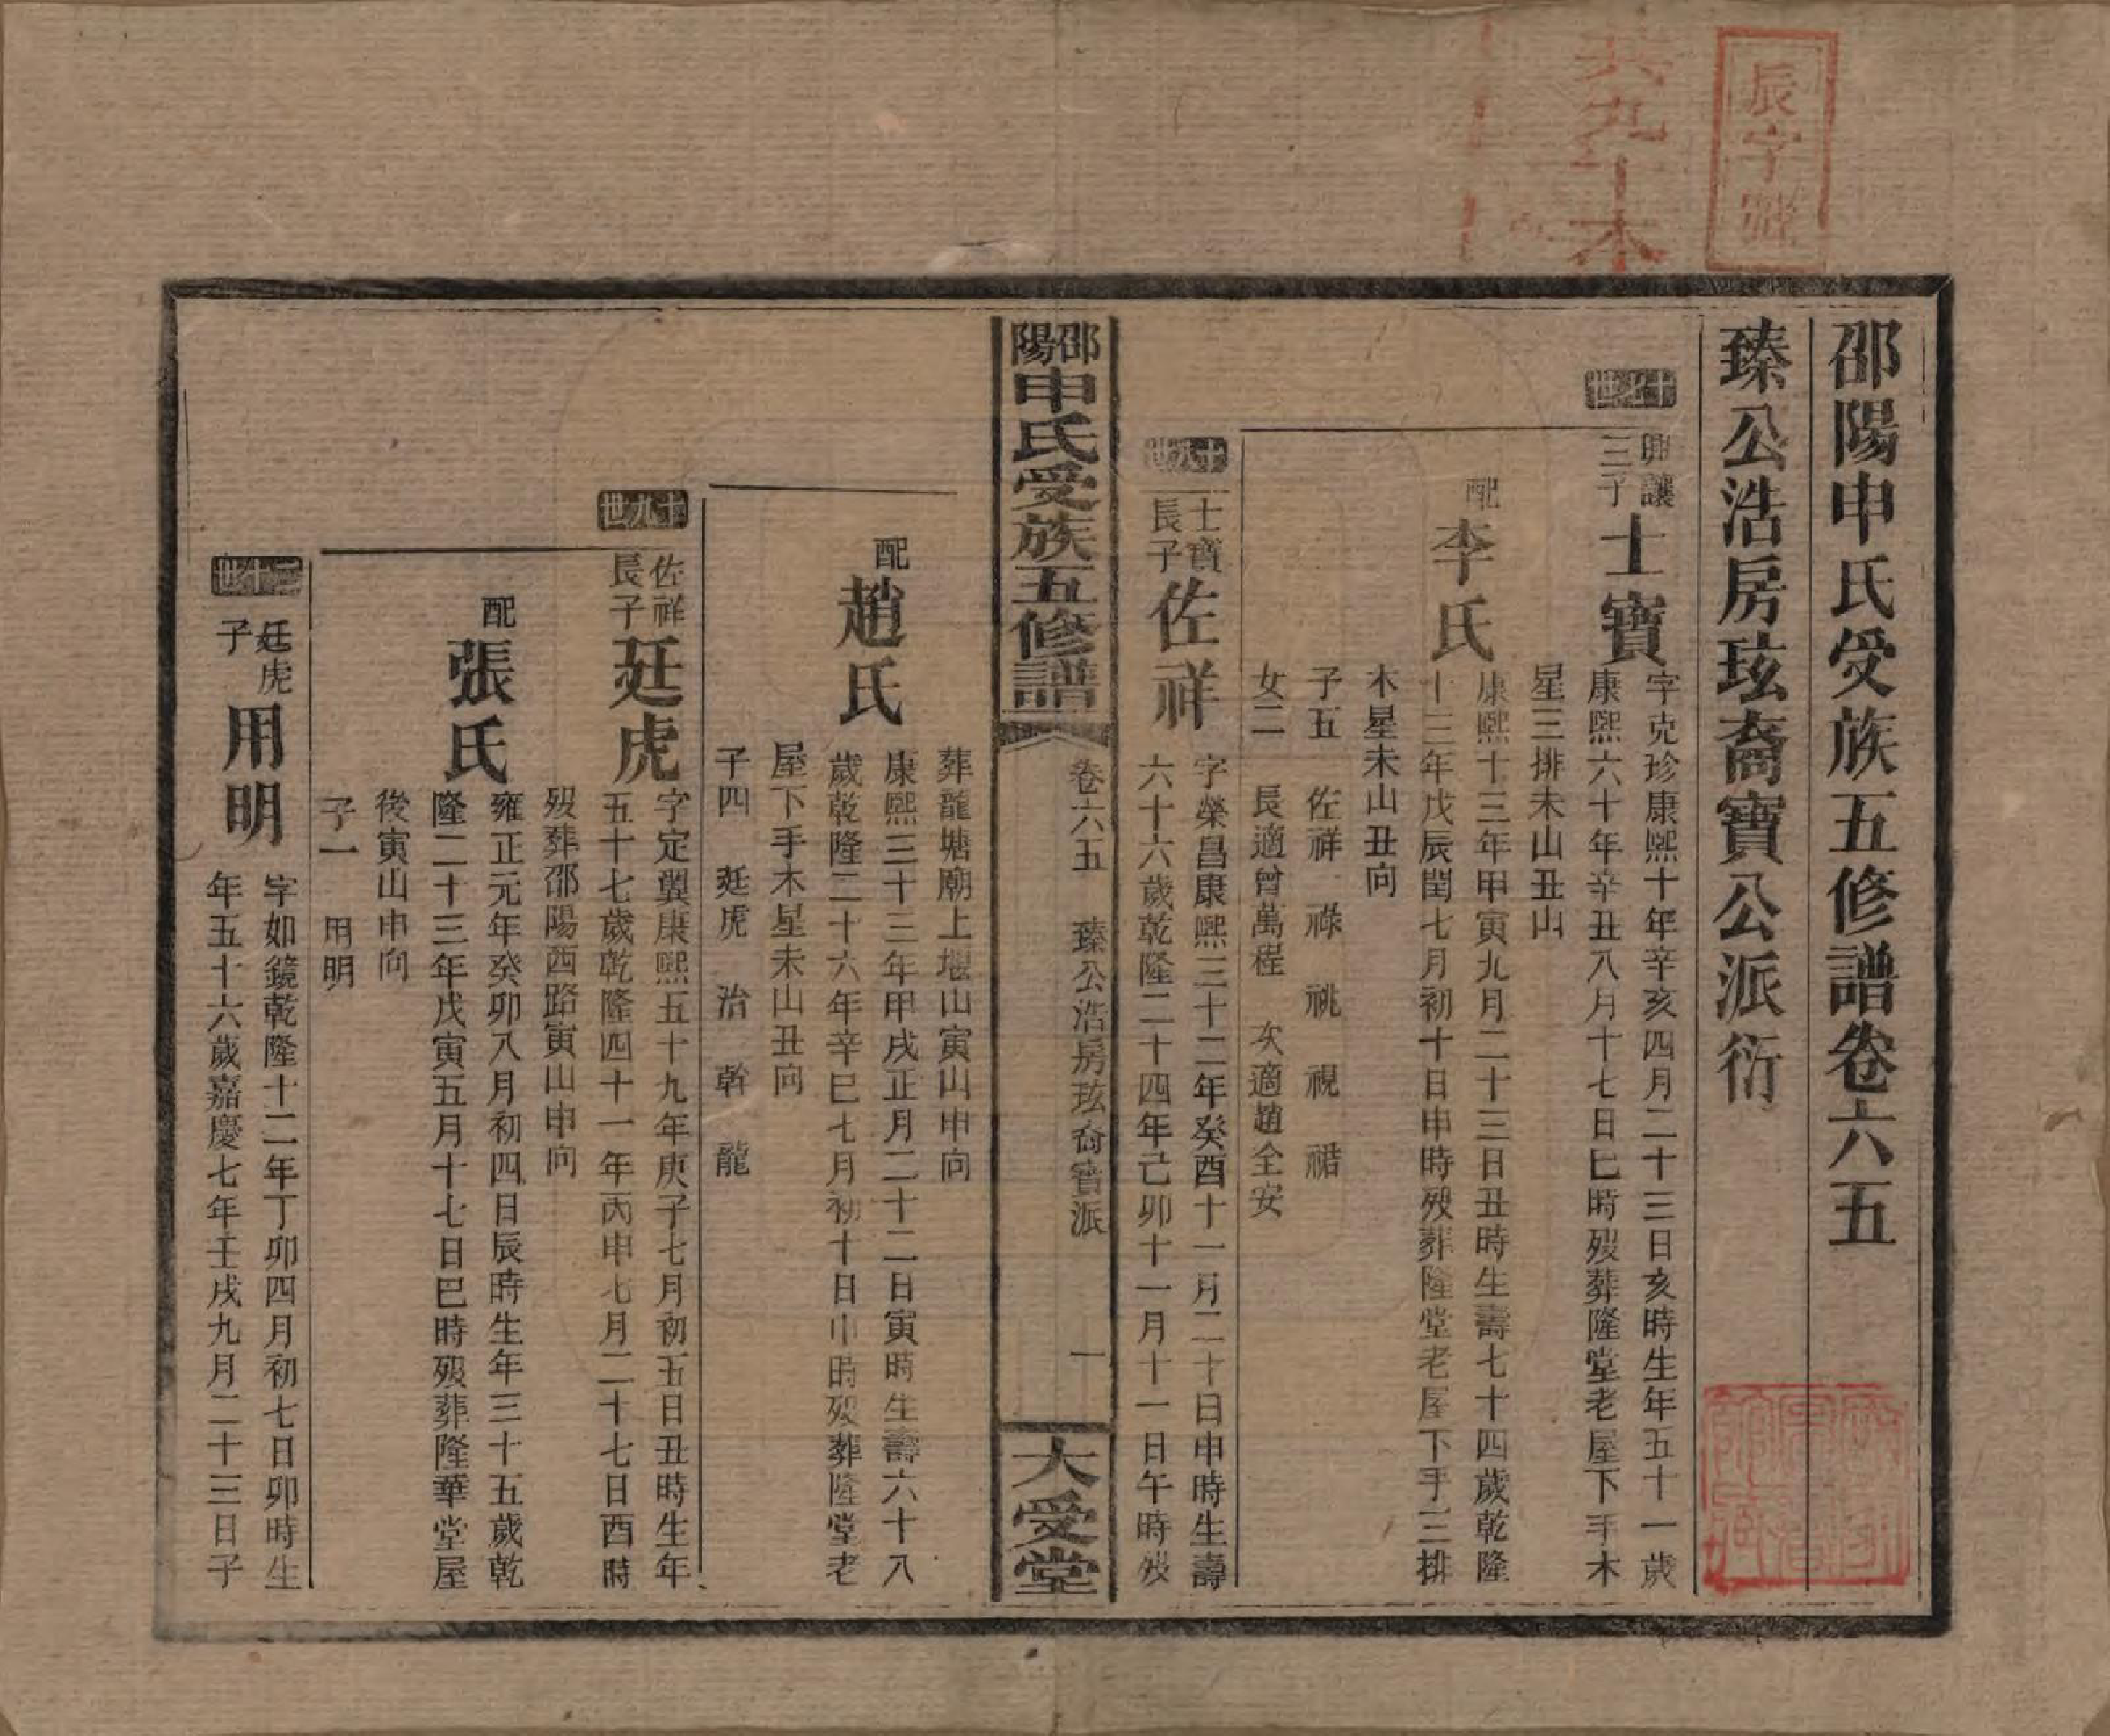 辰字號
共九十本
邵陽申氏受族五修譜卷六五
臻公浩房玹裔寶公派衍
十七世
明讓三子
士寶
字克珍康熙十年辛亥四月二十三日亥時生年五十一歲
康熙六十年辛丑八月十七日巳時歿葬隆堂老屋下手木
星三排未山丑山
配
李氏
康熙十三年甲寅九月二十三日丑時生壽七十四歲乾隆
十三年戊辰閏七月初十日申時歿葬隆堂老屋下手三排
木星未山丑向
子五 佐祥 祿 祧 視 祰
女二 長適曾萬程 次適趙全安
十八世
士寶長子
佐祥
字榮昌康熙三十二年癸酉十一月二十日申時生壽
六十六歲乾隆二十四年己卯十一月十一日午時歿
邵陽申氏受族五修譜
卷六五 臻公浩房玹裔寶派
一
大受堂
葬龍塘廟上堰山寅山申向
配
趙氏
康熙三十三年甲戌正月二十二日寅時生壽六十八
歲乾隆二十六年辛巳七月初十日申時歿葬隆堂老
屋下手木星未山丑向
子四 廷虎 治 幹 龍
十九世
佐祥長子
廷虎
字定翼康熙五十九年庚子七月初五日丑時生年
五十七歲乾隆四十一年丙申七月二十七日酉時
歿葬邵陽西路寅山申向
配
張氏
雍正元年癸卯八月初四日辰時生年三十五歲乾
隆二十三年戊寅五月十七日巳時歿葬隆華堂屋
後寅山申向
子一 用明
二十世
廷虎子
用明
字如鏡乾隆十二年丁卯四月初七日卯時生
年五十六歲嘉慶七年壬戌九月二十三日子